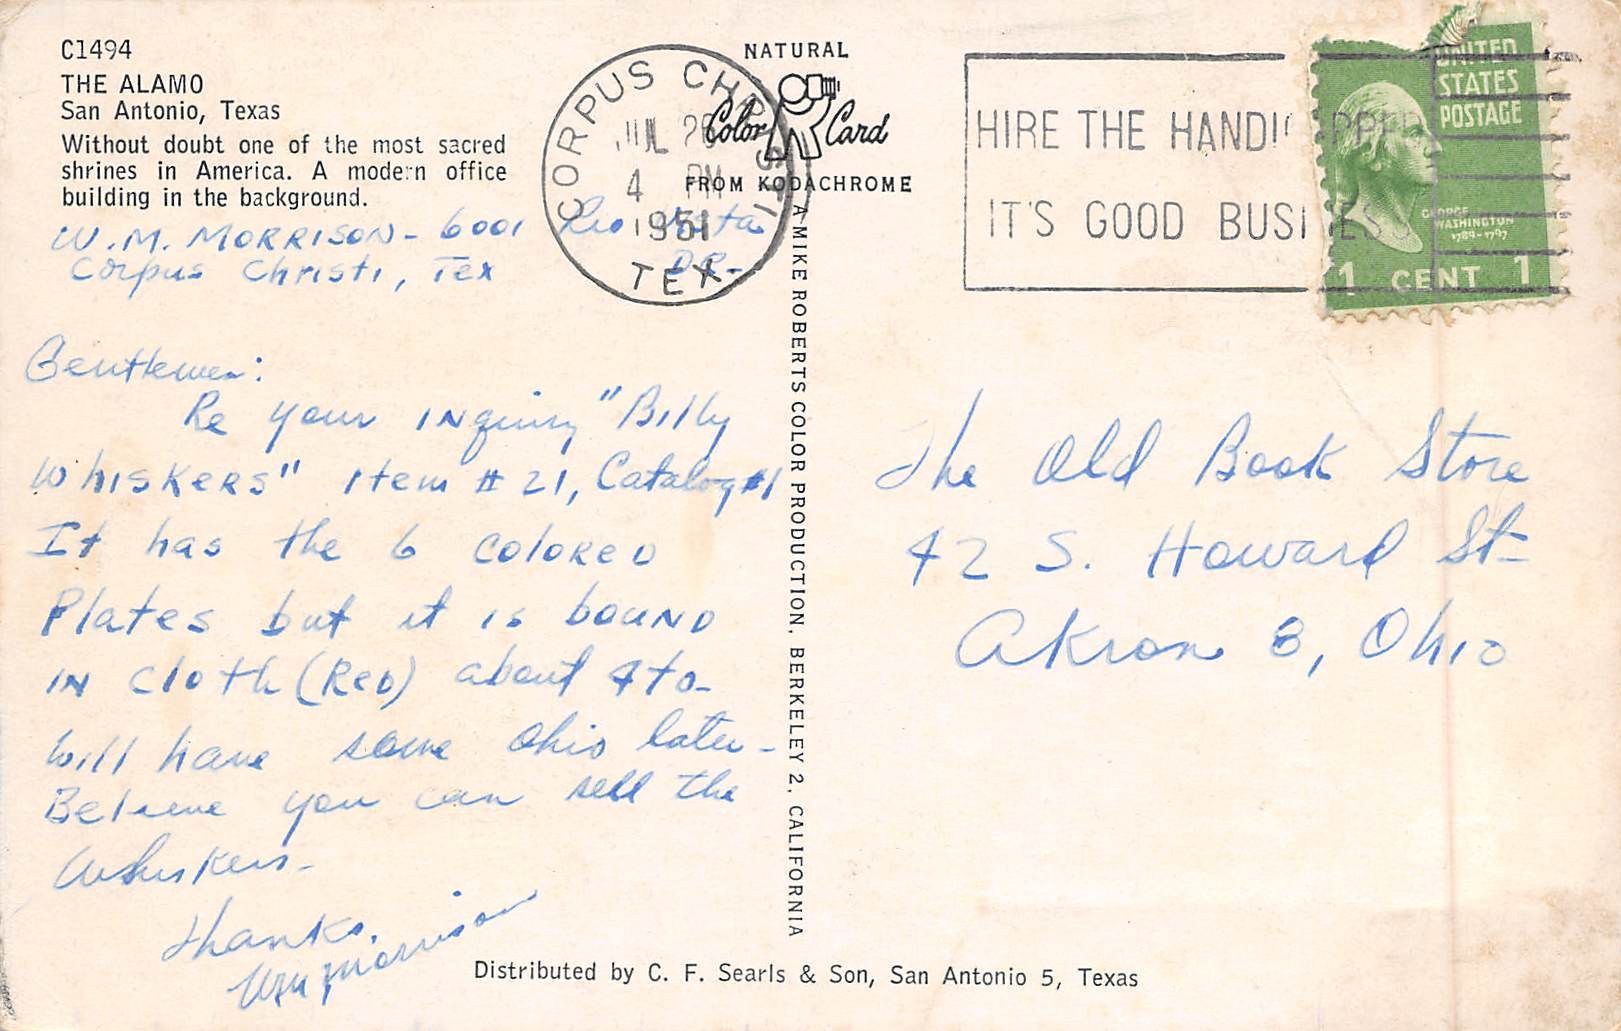 C1494
THE ALAMO
San Antonio, Texas
Without doubt one of the most sacred
shrines in America. A modern office
building in the background.
W.M. MORRISON - 6001 Rio Vista
DR-
Corpus Christi, Tex
Gentlemen:
Re your INquiry "Billy
WhisKeRs" Item # 21, Catalog #1
It has the 6 coloReD
Plates but it is bouND
IN cloth (ReD) about 4to-
Will have some Ohio later -
Believe you can sell the
Whiskers-
Thanks,
Wm Morrison
NATURAL
Color Card
FROM KODACHROME
A MIKE ROBERTS COLOR PRODUCTION, BERKELEY 2, CALIFORNIA
Distributed by C. F. Searls & Son, San Antonio 5, Texas
CORPUS CHRISTI
JUL 26
4 PM
1951
TEX
HIRE THE HANDICAPPED
IT'S GOOD BUSINESS
UNITED
STATES
POSTAGE
GEORGE
WASHINGTON
1789-1797
1 CENT 1
The Old Book Store
42 S. Howard St-
Akron 8, Ohio